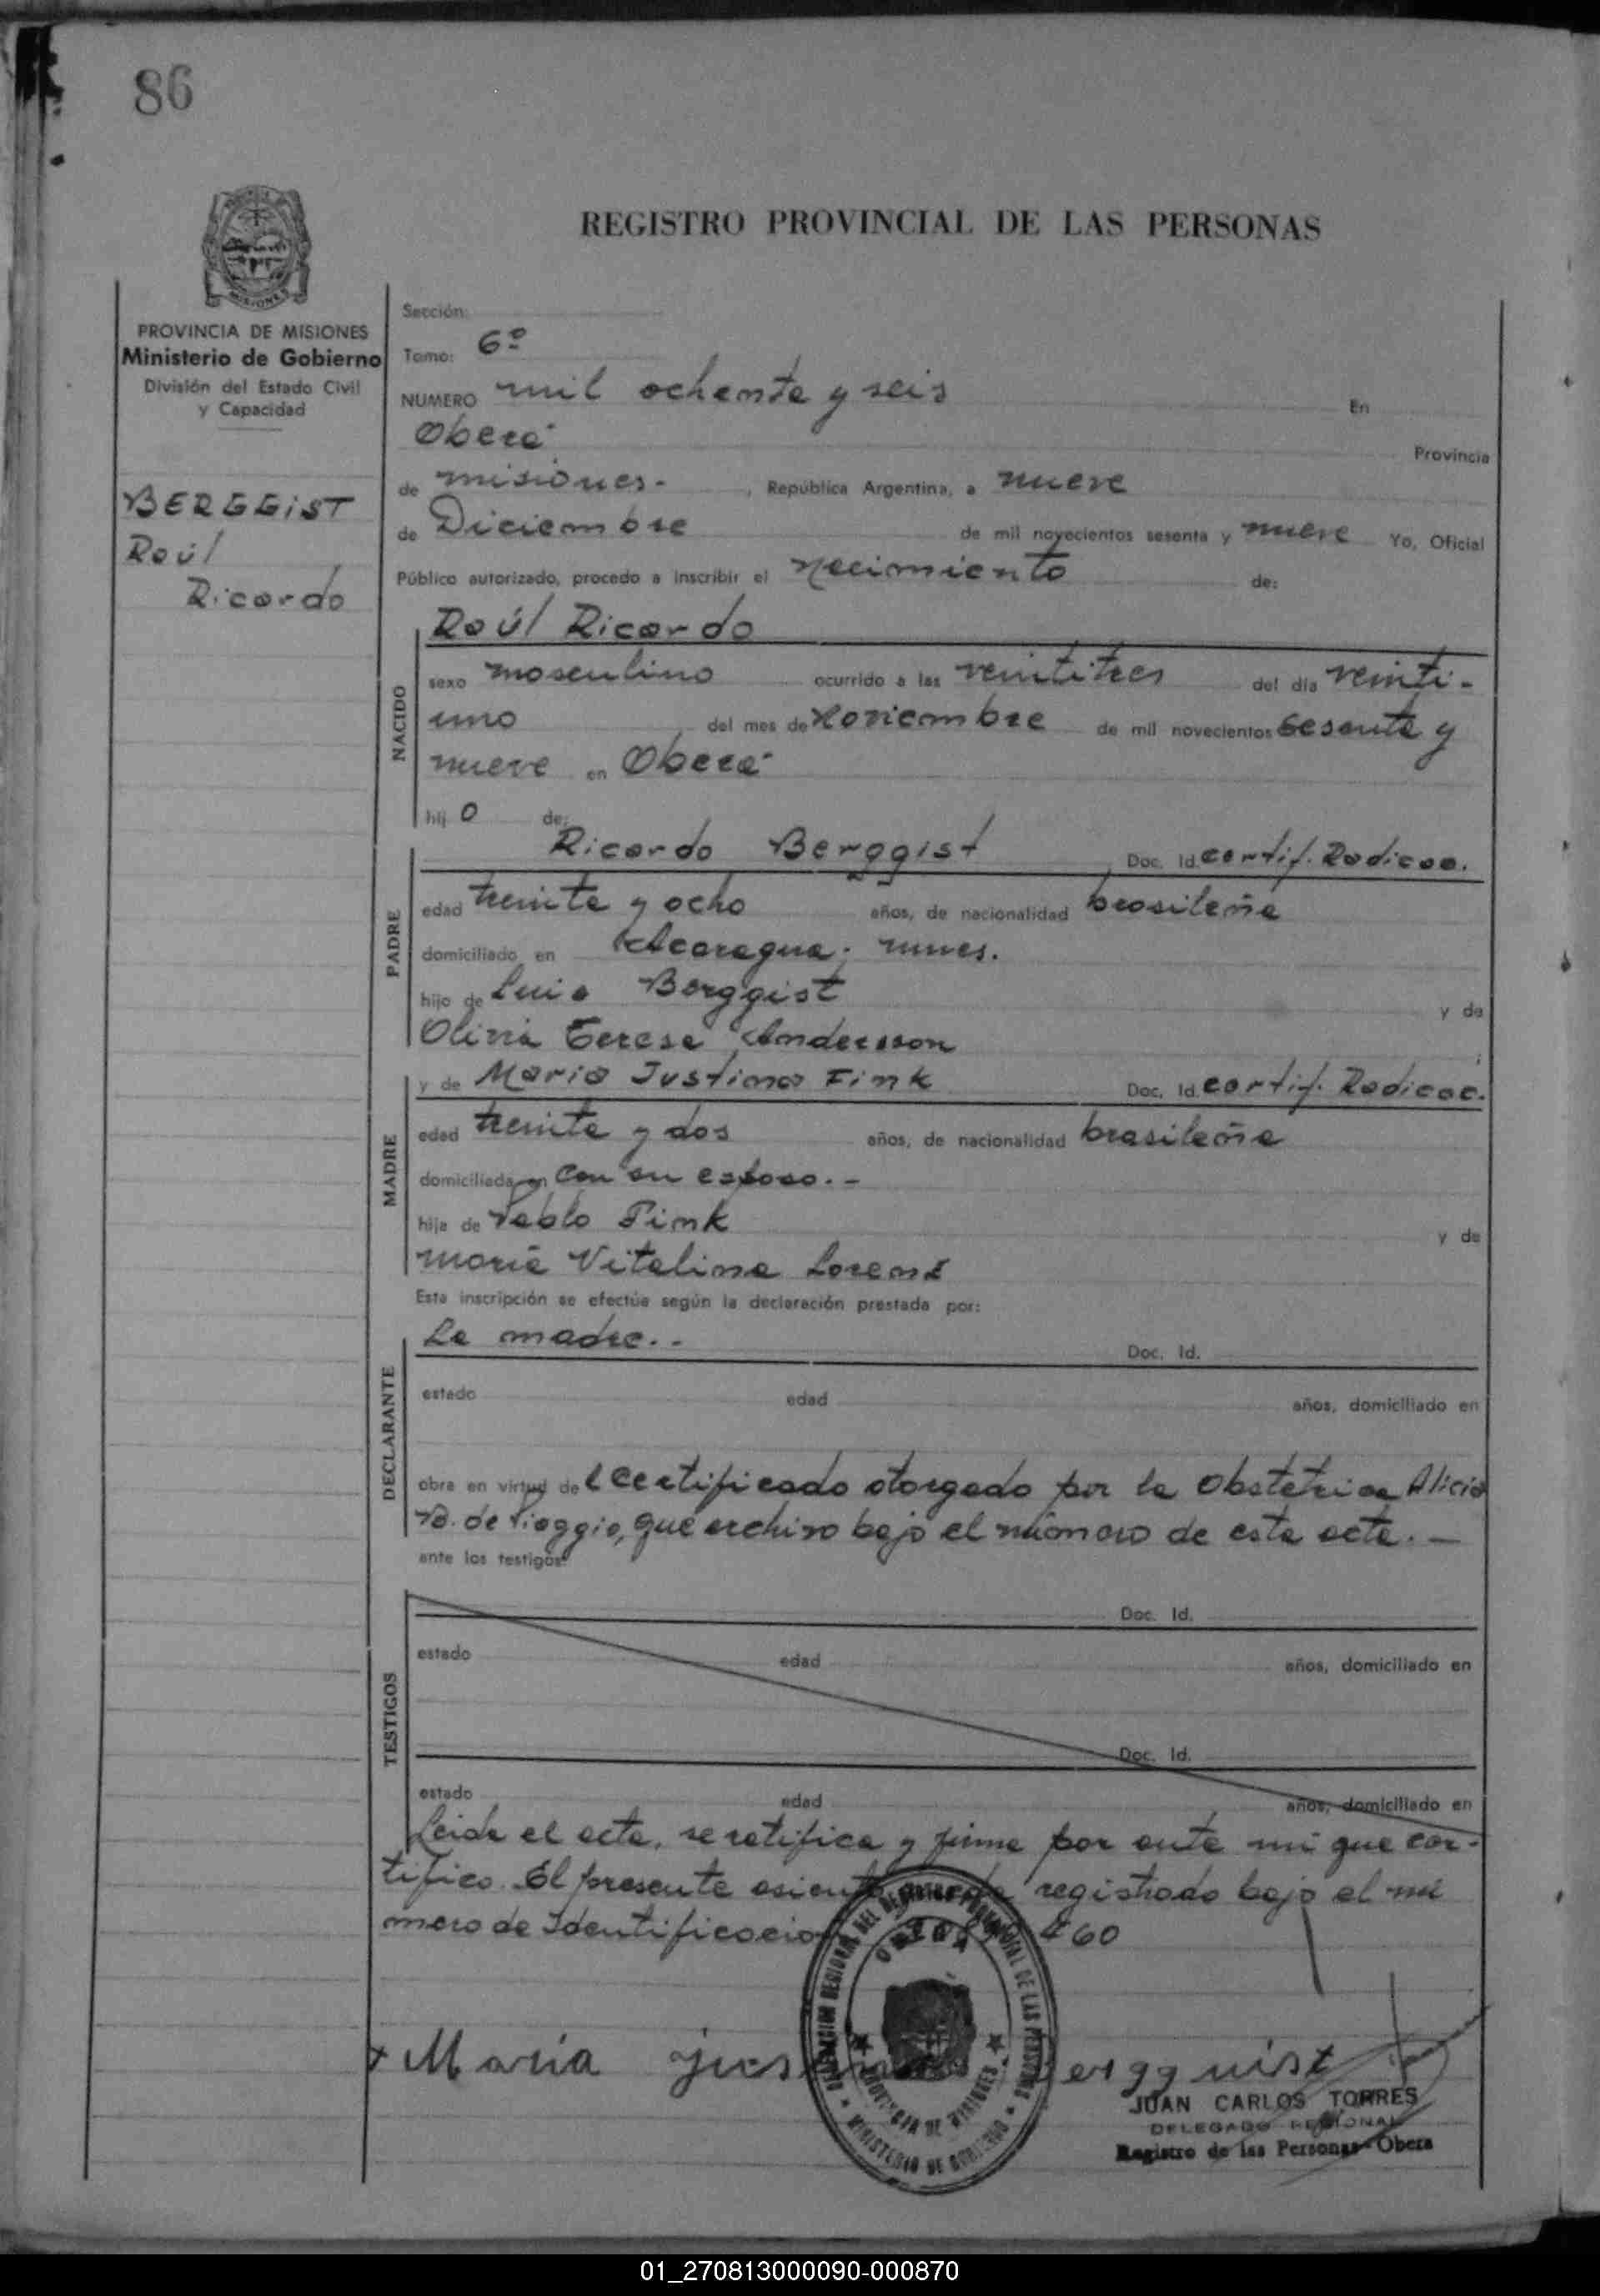 86
REGISTRO PROVINCIAL DE LAS PERSONAS
MISIONES
PROVINCIA DE MISIONES
Ministerio de Gobierno
División del Estado Civil
y Capacidad
BERGGIST
Raúl
Ricardo
Sección:
Tomo: 6º
NUMERO mil ochenta y seis En
Oberá
Provincia
de misiones.- , República Argentina, a nueve
de Diciembre de mil novecientos sesenta y nueve Yo, Oficial
Público autorizado, procedo a inscribir el Nacimiento de:
NACIDO
Raúl Ricardo
sexo masculino ocurrido a las veintitres del día veinti-
uno del mes de Noviembre de mil novecientos sesenta y
nueve en Oberá
hij o de:
PADRE
Ricardo Berggist Doc. Id. certif. Radicac.
edad treinta y ocho años, de nacionalidad brasileña
domiciliado en Acaragua.
hijo de Luis Berggist y de
Olivia Teresa Andersson
MADRE
y de Maria Justina Fink Doc. Id. certif. Radicac.
edad treinta y dos años, de nacionalidad brasileña
domiciliada en con su esposo.-
hija de Pablo Fink y de
maria Vitalina Lorenz
Esta inscripción se efectúa según la declaración prestada por:
DECLARANTE
La madre.- Doc. Id.
estado edad años, domiciliado en
obra en virtud de l certificado otorgado por la Obstetrica Alicia
B. de Pioggio, que archivo bajo el número de esta acta.-
ante los testigos:
TESTIGOS
Doc. Id.
estado edad años, domiciliado en
Doc. Id.
estado edad años, domiciliado en
Leida el acta, se ratifica y firma por ante mi que cer-
tifico. El presente asiento queda registrado bajo el nú
mero de Identificación 460
DELEGACION REGIONAL DEL REGISTRO PROVINCIAL DE LAS PERSONAS
OBERA
PROVINCIA DE MISIONES
MINISTERIO DE GOBIERNO
x Maria justina Bergquist
JUAN CARLOS TORRES
DELEGADO REGIONAL
Registro de las Personas - Obera
01_270813000090-000870